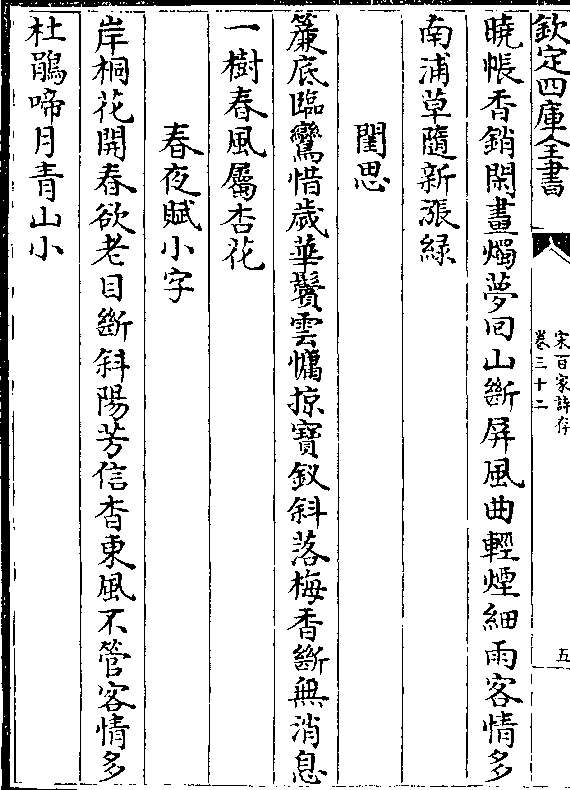 欽定四庫全書
宋百家詩存
卷三十二
五
曉帳香銷閑畫燭夢回山斷屏風曲輕煙細雨客情多
南浦草隨新漲緑
閨思
簾底臨鸞惜歳華鬢雲慵掠寳釵斜落梅香斷無消息
一樹春風屬杏花
春夜賦小字
岸桐花開春欲老目斷斜陽芳信杳東風不管客情多
杜鵑啼月青山小